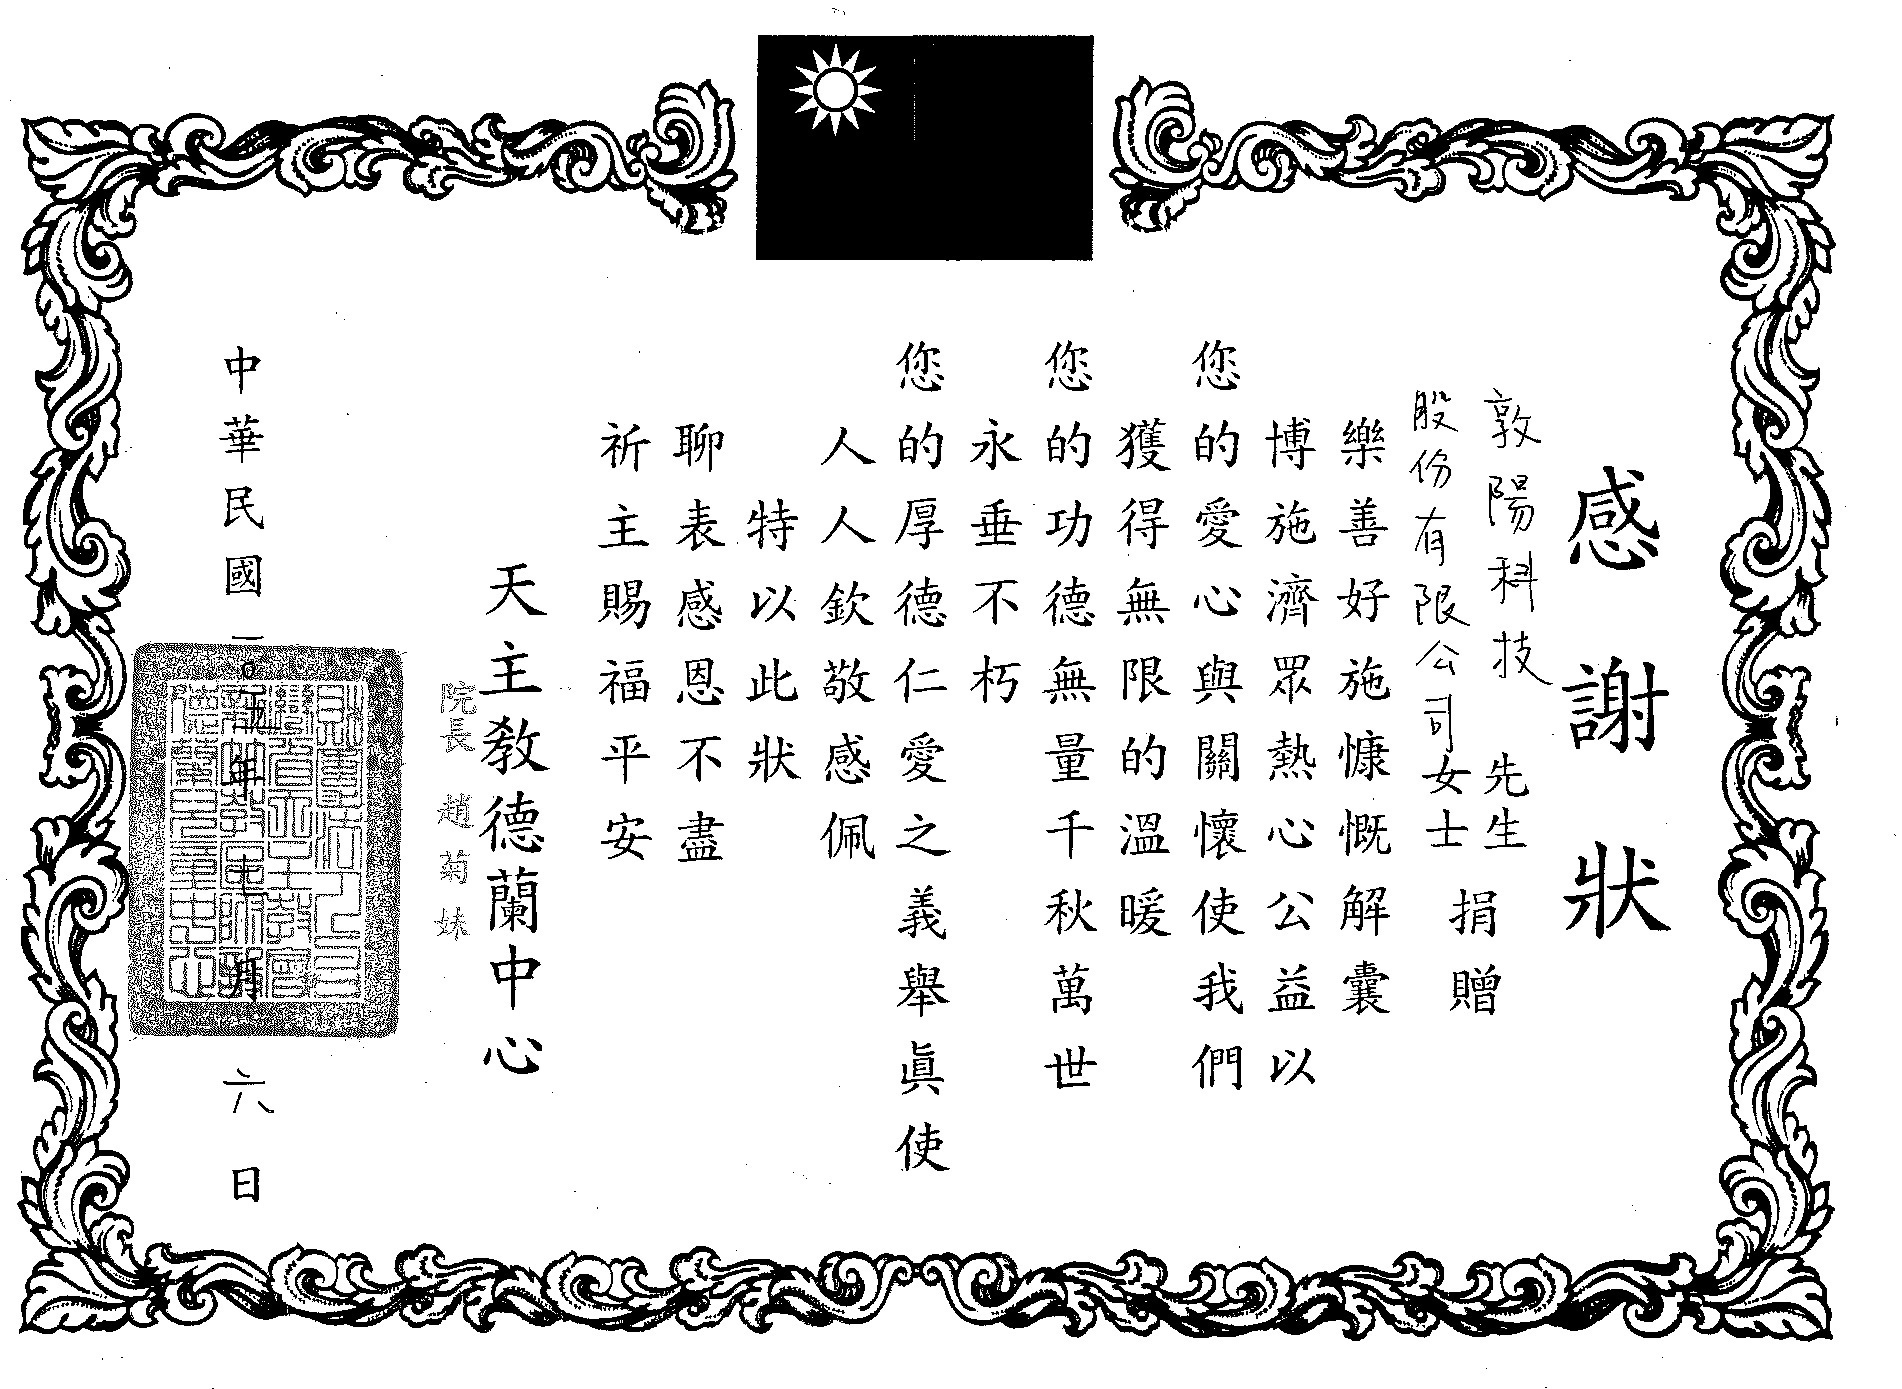 感謝狀
敦陽科技 先生
股份有限公司女士
捐贈
樂善好施慷慨解囊
博施濟眾熱心公益以
您的愛心與關懷使我們
獲得無限的溫暖
您的功德無量千秋萬世
永垂不朽
您的厚德仁愛之義舉眞使
人人欽敬感佩
特以此狀
聊表感恩不盡
祈主賜福平安
天主教德蘭中心
院長 趙菊妹
中華民國一○五年 月六日